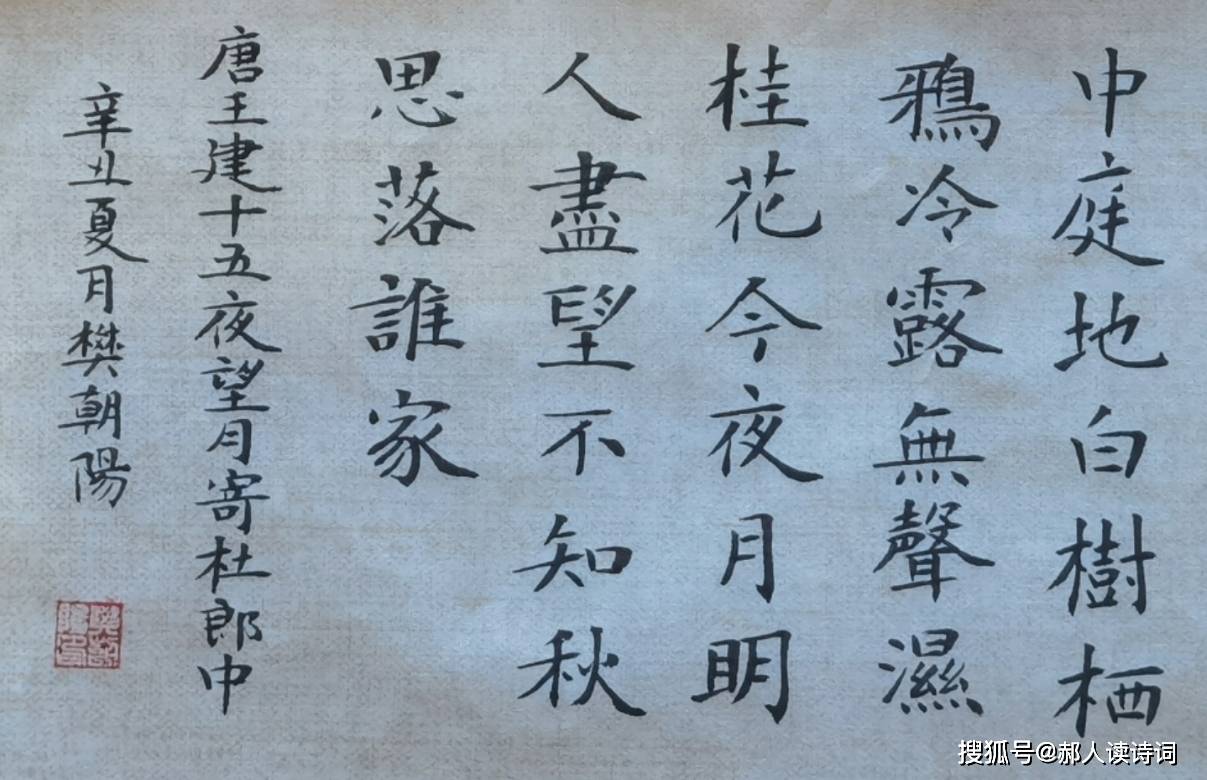 中庭地白樹栖
鴉冷露無聲濕
桂花今夜月明
人盡望不知秋
思落誰家
唐王建十五夜望月寄杜郎中
辛丑夏月樊朝陽
搜狐号@郝人读诗词